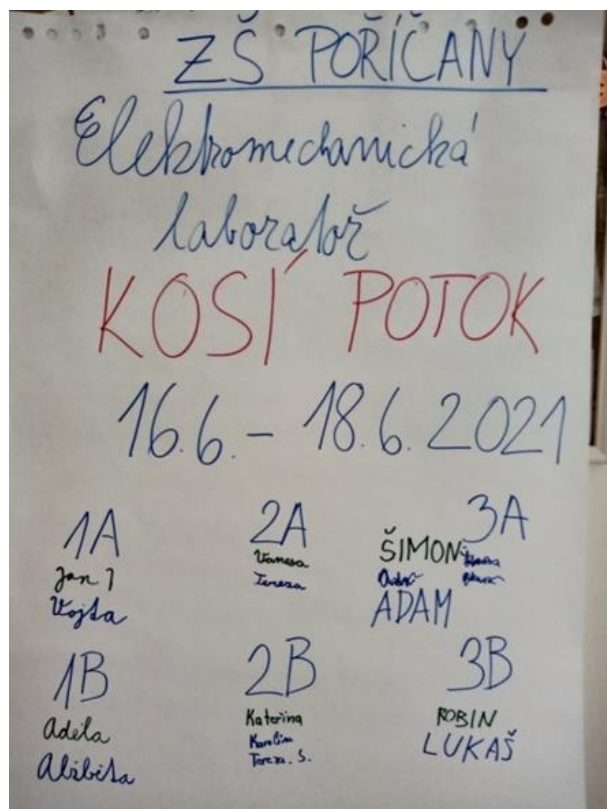 ZŠ POŘÍČANY
Elektromechanická
laboratoř
KOSÍ POTOK
16.6. - 18.6. 2021
1A
Jan J
Vojta
2A
Vanesa
Tereza
3A
ŠIMON
ADAM
1B
Adéla
Alžběta
2B
Kateřina
Karolína
Tereza. S.
3B
ROBIN
LUKÁŠ